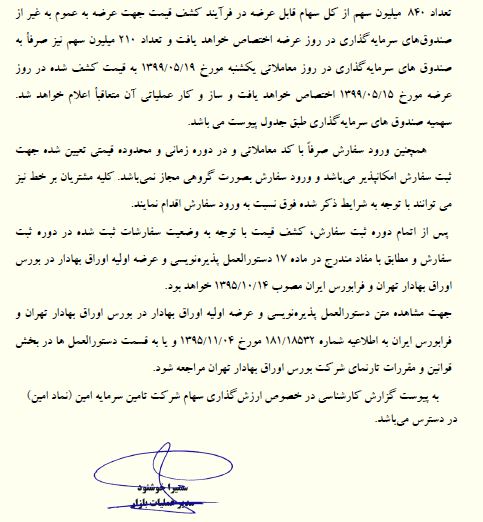 تعداد ۸۴۰ میلیون سهم از کل سهام قابل عرضه در فرآیند کشف قیمت جهت عرضه به عموم به غیر از
صندوق‌های سرمایه‌گذاری در روز عرضه اختصاص خواهد یافت و تعداد ۲۱۰ میلیون سهم نیز صرفاً به
صندوق های سرمایه‌گذاری در روز معاملاتی یکشنبه مورخ ۱۳۹۹/۰۵/۱۹ به قیمت کشف شده در روز
عرضه مورخ ۱۳۹۹/۰۵/۱۵ اختصاص خواهد یافت و ساز و کار عملیاتی آن متعاقباً اعلام خواهد شد.
سهمیه صندوق های سرمایه‌گذاری طبق جدول پیوست می باشد.
همچنین ورود سفارش صرفاً با کد معاملاتی و در دوره زمانی و محدوده قیمتی تعیین شده جهت
ثبت سفارش امکانپذیر می‌باشد و ورود سفارش بصورت گروهی مجاز نمی‌باشد. کلیه مشتریان بر خط نیز
می توانند با توجه به شرایط ذکر شده فوق نسبت به ورود سفارش اقدام نمایند.
پس از اتمام دوره ثبت سفارش، کشف قیمت با توجه به وضعیت سفارشات ثبت شده در دوره ثبت
سفارش و مطابق با مفاد مندرج در ماده ۱۷ دستورالعمل پذیره‌نویسی و عرضه اولیه اوراق بهادار در بورس
اوراق بهادار تهران و فرابورس ایران مصوب ۱۳۹۵/۱۰/۱۴ خواهد بود.
جهت مشاهده متن دستورالعمل پذیره‌نویسی و عرضه اولیه اوراق بهادار در بورس اوراق بهادار تهران و
فرابورس ایران به اطلاعیه شماره ۱۸۱/۱۸۵۳۲ مورخ ۱۳۹۵/۱۱/۰۴ و یا به قسمت دستورالعمل ها در بخش
قوانین و مقررات تارنمای شرکت بورس اوراق بهادار تهران مراجعه شود.
به پیوست گزارش کارشناسی در خصوص ارزش‌گذاری سهام شرکت تامین سرمایه امین (نماد امین)
در دسترس می‌باشد.
سمیرا خوشنود
مدیر عملیات بازار